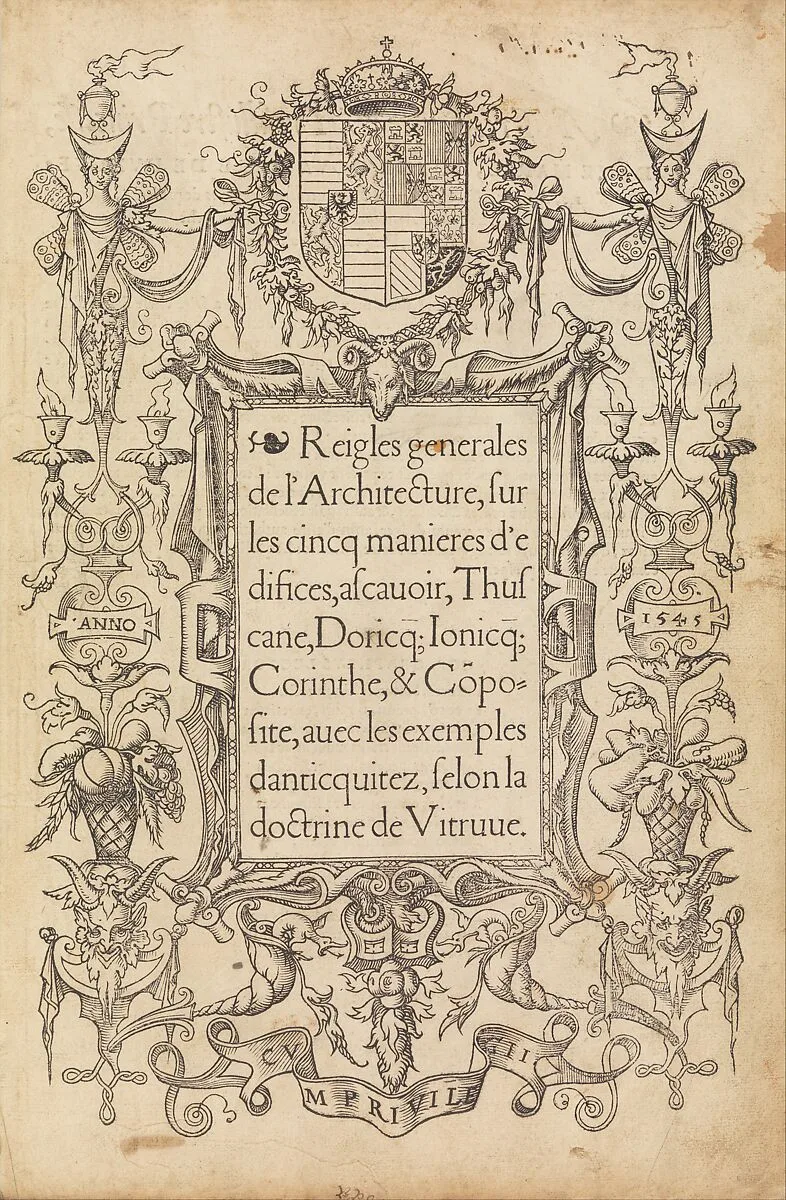 Reigles generales
de l'Architecture, ſur
les cincq manieres d'e
difices, aſcauoir, Thuſ
cane, Doricq̄; Ionicq̄;
Corinthe, & Cōpo⸗
ſite, auec les exemples
danticquitez, ſelon la
doctrine de Vitruue.
ANNO
1545
CV
M PRIVILE
II